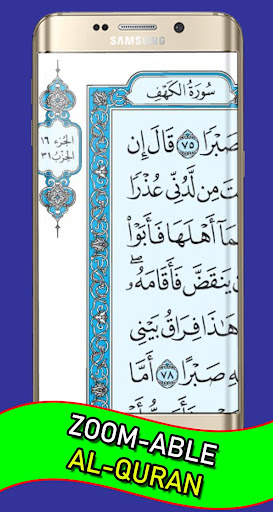 SAMSUNG
سُورَةُ الكَهْفِ
الجُزءُ ١٦
الحِزْبُ ٣١
صَبْرًا ٧٥ قَالَ إِن
مِن لَّدُنِّي عُذْرًا
أَهْلَهَا فَأَبَوْا
يَنقَضَّ فَأَقَامَهُۥ
هَٰذَا فِرَاقُ بَيْنِي
صَبْرًا ٧٨ أَمَّا
ZOOM-ABLE
AL-QURAN